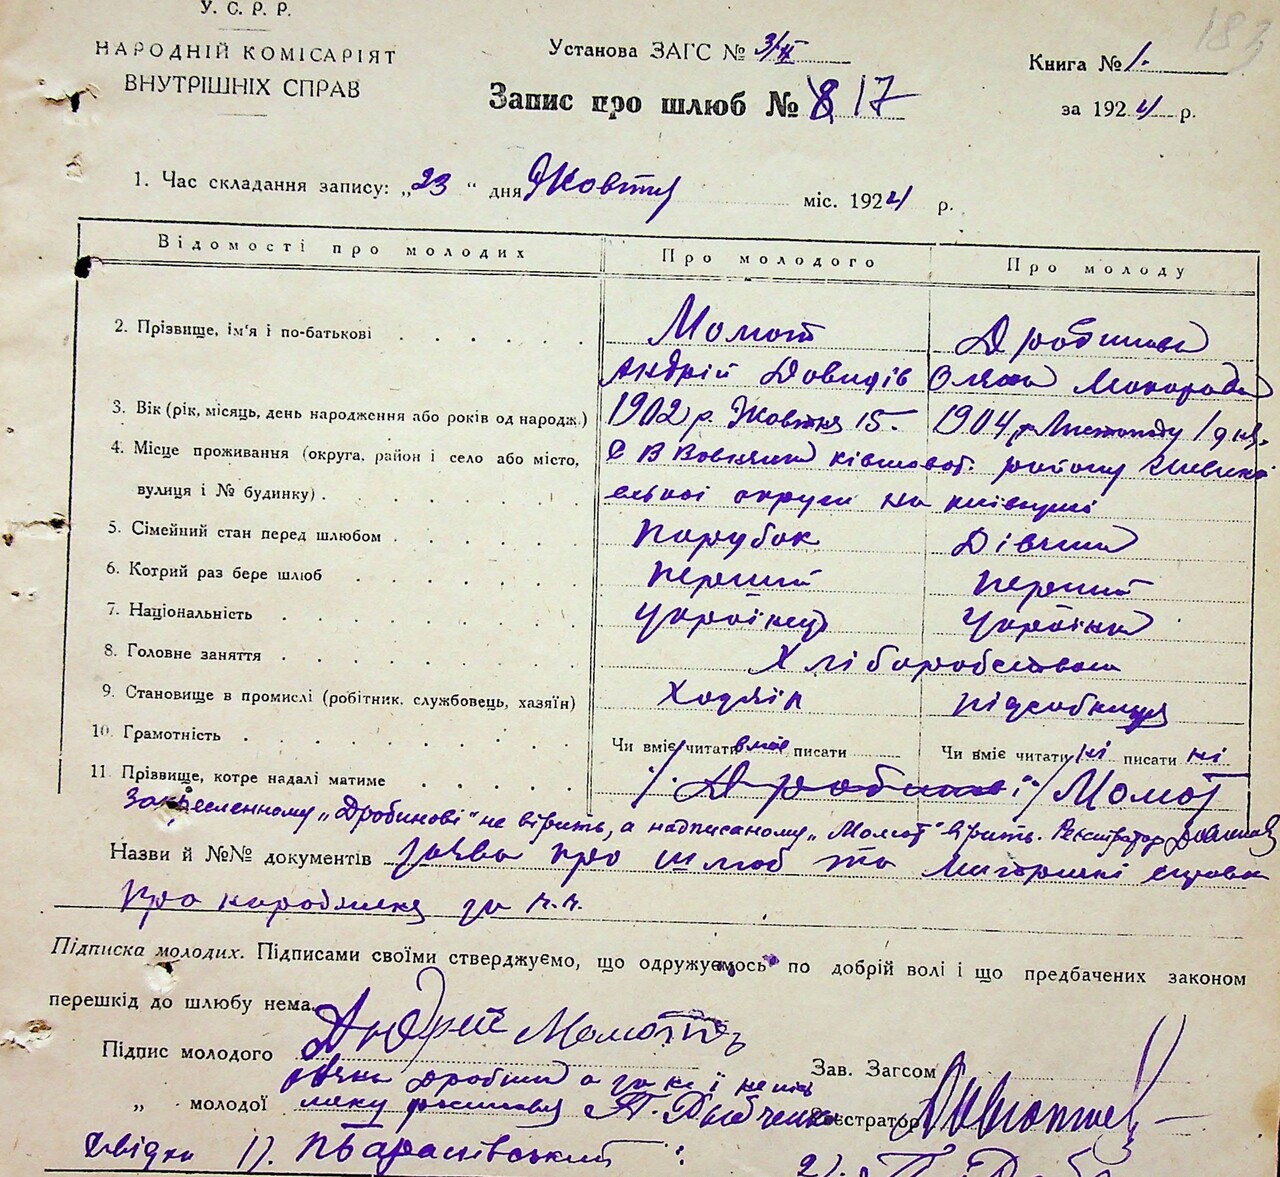 У. С. Р. Р.
НАРОДНІЙ КОМІСАРІЯТ
ВНУТРІШНІХ СПРАВ
Установа ЗАГС № 3/ІІ
Книга № 1.
183
Запис про шлюб № 817
за 1924 р.
1. Час складання запису: „23“ дня Жовтня міс. 1924 р.
Відомості про молодих Про молодого Про молоду
2. Прізвище, ім'я і по-батькові Момот
Андрій Довидів Олена
3. Вік (рік, місяць, день народження або років од народж.) 1902 р. Жовтня 15. 1904 р. Листопаду 1 дня.
4. Місце проживання (округа, район і село або місто, району
вулиця і № будинку) округи на київщині
5. Сімейний стан перед шлюбом Парубок Дівчина
6. Котрий раз бере шлюб перший перший
7. Національність Українець Українка
8. Головне заняття Хліборобство
9. Становище в промислі (робітник, службовець, хазяїн) Хазяїн підсобниця
10. Грамотність Чи вміє читати вміє писати Чи вміє читати ні писати ні
11. Прізвище, котре надалі матиме Дробинові Момот
Закресленному „Дробинові“ не вірить, а надписаному „Момот“ вірить. Реєстратор
Назви й №№ документів заява про шлюб та справка
про народження за н.н.
Підписка молодих. Підписами своїми стверджуємо, що одружуємось по добрій волі і що предбачених законом
перешкід до шлюбу нема.
Підпис молодого Андрій Момот
Зав. Загсом
„ молодої
Реєстратор
Свідки 1).
2).